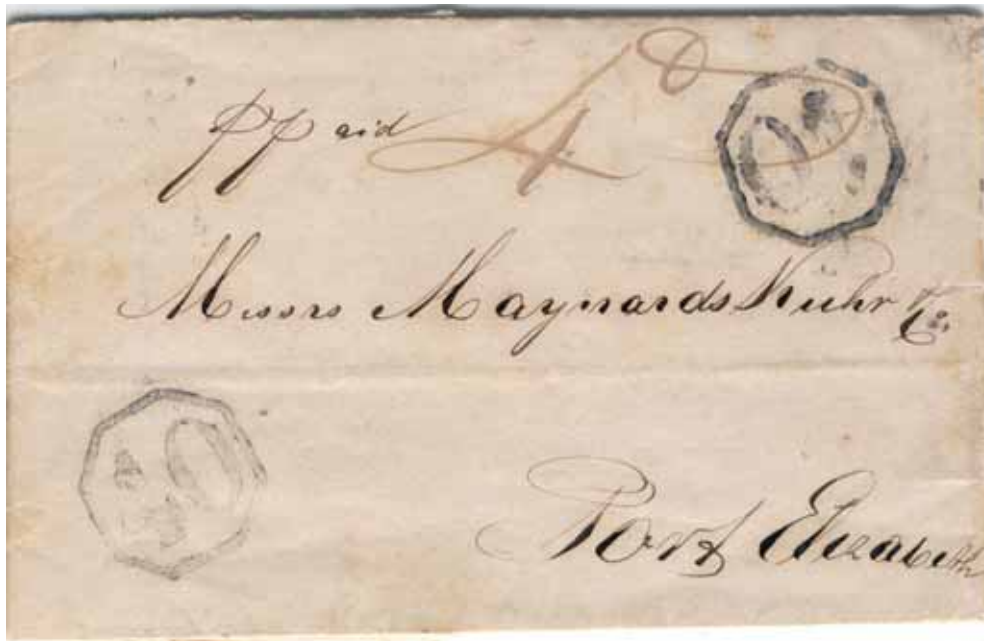 ppaid 4d
Messrs Maynards Kuhr & Co.
Port Elizabeth